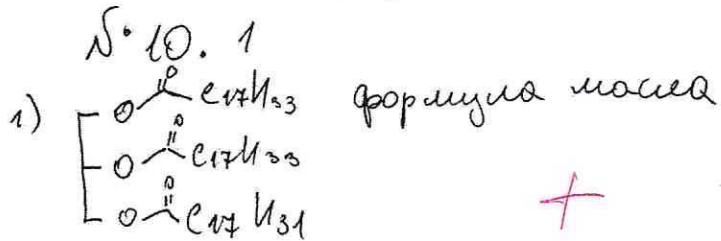 № 10. 1
1) O O C17H33 формула масла
O O C17H33
O O C17H31
+